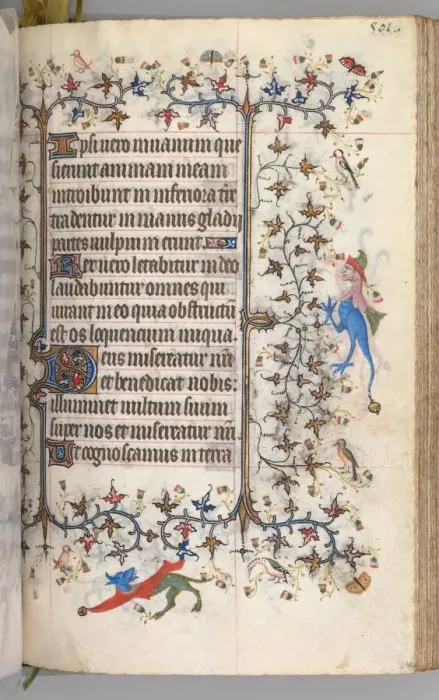 Ipsi vero in vanum que
sierunt animam meam
introibunt in inferiora tr̄e
tradentur in manus gladii
partes vulpium erunt.
Rex vero letabitur in deo
laudabuntur omnes qui
iurant in eo quia obstructū
est os loquencium iniqua.
Deus misereatur nr̄i
et benedicat nobis:
illuminet vultum suum
super nos et misereatur nr̄i.
Ut cognoscamus in terra